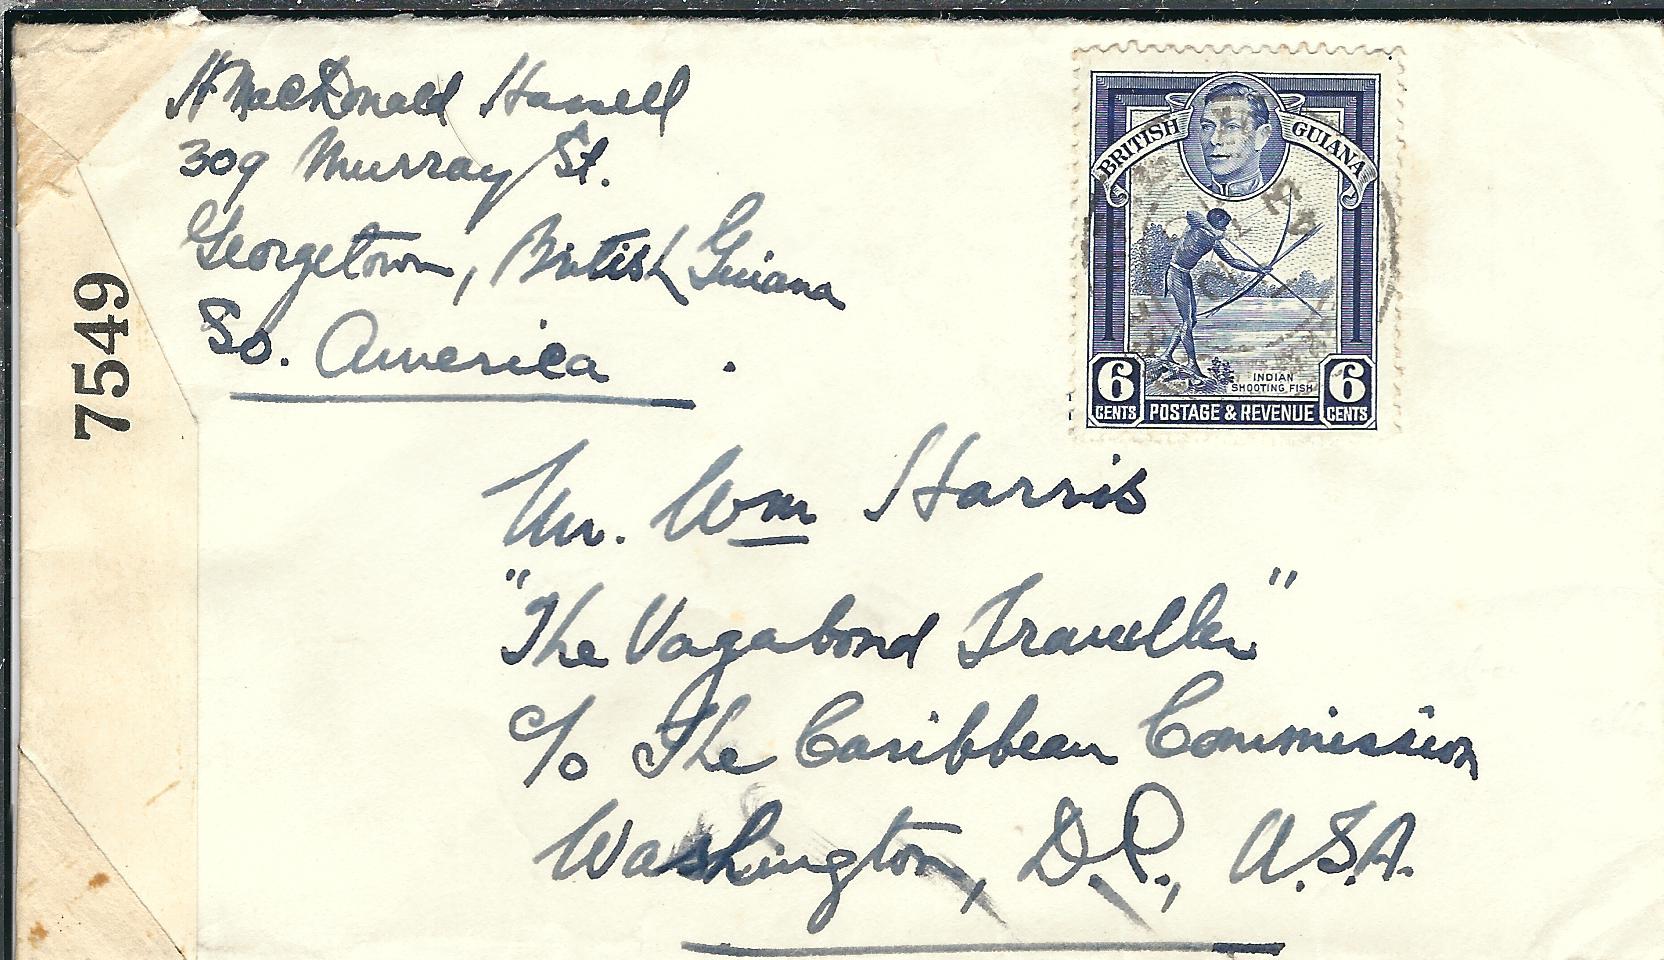 H MacDonald Hassell
309 Murray St.
Georgetown, British Guiana
So. America
7549
BRITISH GUIANA
INDIAN
SHOOTING FISH
6 CENTS POSTAGE & REVENUE 6 CENTS
Mr. Wm Harris
"The Vagabond Traveller"
c/o The Caribbean Commission
Washington, D.C., U.S.A.